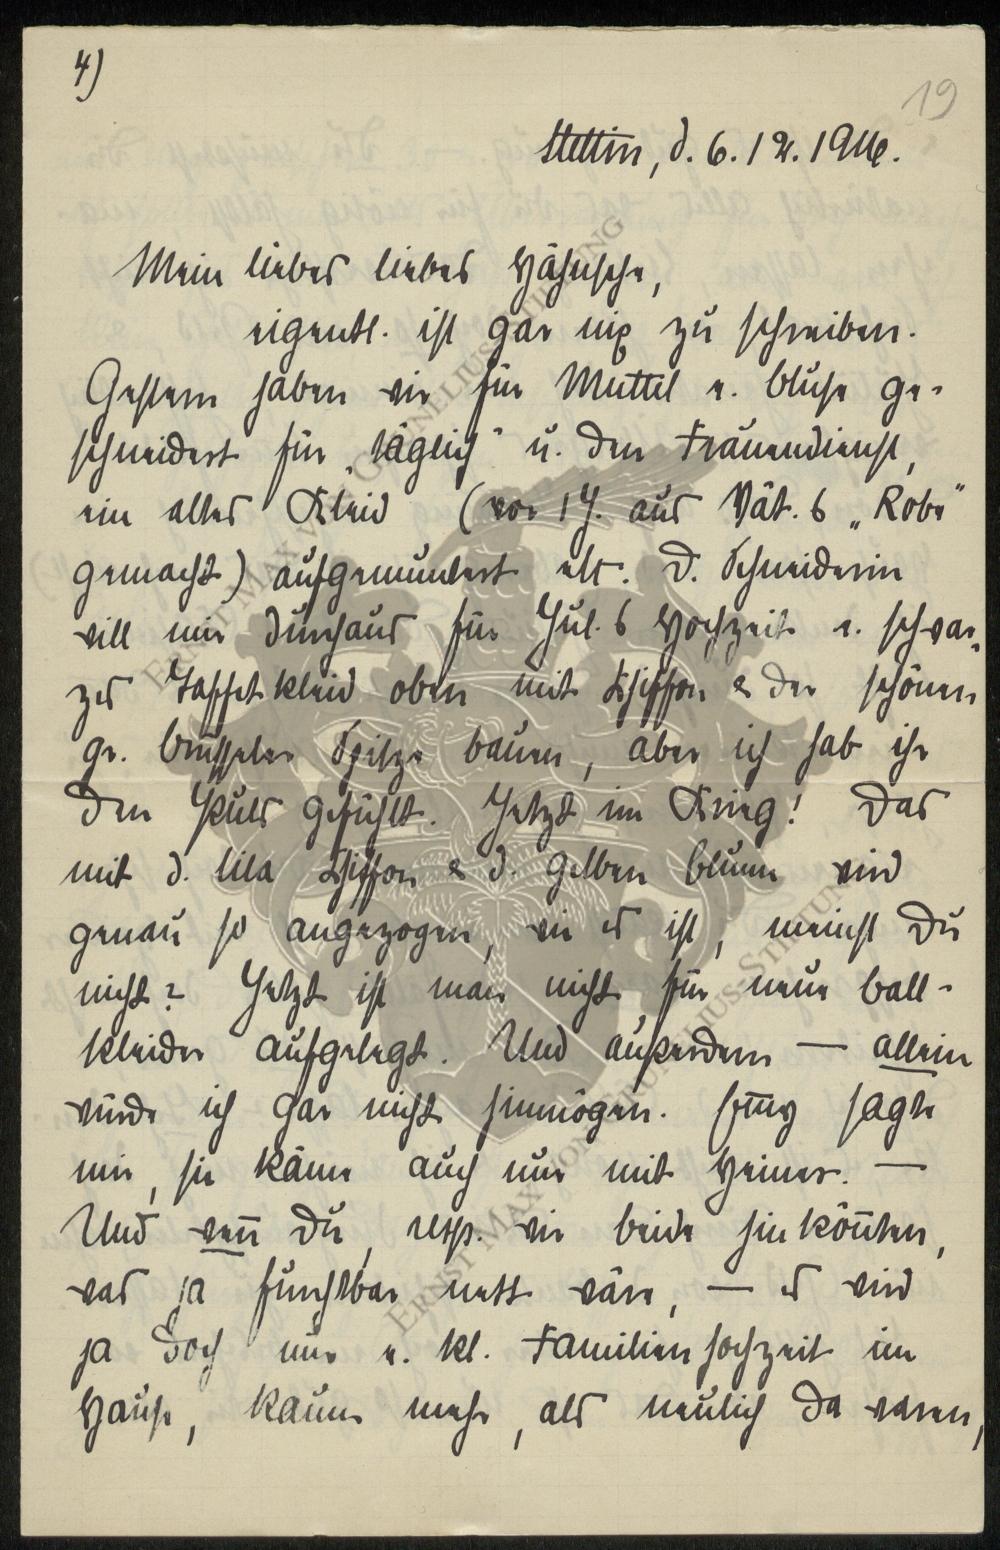 4)
19
Stettin, d. 6. 12. 1916.
Mein liebes liebes Hähnsche,
eigentl. ist gar nix zu schreiben.
Gestern haben wir für Muttel e. Bluse ge-
schneidert für „täglich" u. den Frauendienst,
ein altes Kleid (vor 1 J. aus Vät.s „Robe"
gemacht) aufgemuntert etc. D. Schneiderin
will mir durchaus für Jul.s Hochzeit e. schwar-
zes Taffetkleid oben mit Chiffon & der schönen
gr. Brüsseler Spitze bauen, aber ich hab ihr
den Puls gefühlt. Jetzt im Krieg! Das
mit d. lila Chiffon & d. gelben Blumen wird
genau so angezogen, wie es ist, meinst Du
nicht? Jetzt ist man nicht für neue Ball-
kleider aufgelegt. Und außerdem — allein
würde ich gar nicht hinmögen. sagte
mir, sie käme auch nur mit Heiner. —
Und wen̄ Du, resp. wir beide hinkön̄ten,
was ja furchtbar nett wäre, — es wird
ja doch nur e. kl. Familienhochzeit im
Hause, kaum mehr, als neulich da waren,
ERNST MAX VON CORNELIUS-STIFTUNG
ERNST MAX VON CORNELIUS-STIFTUNG